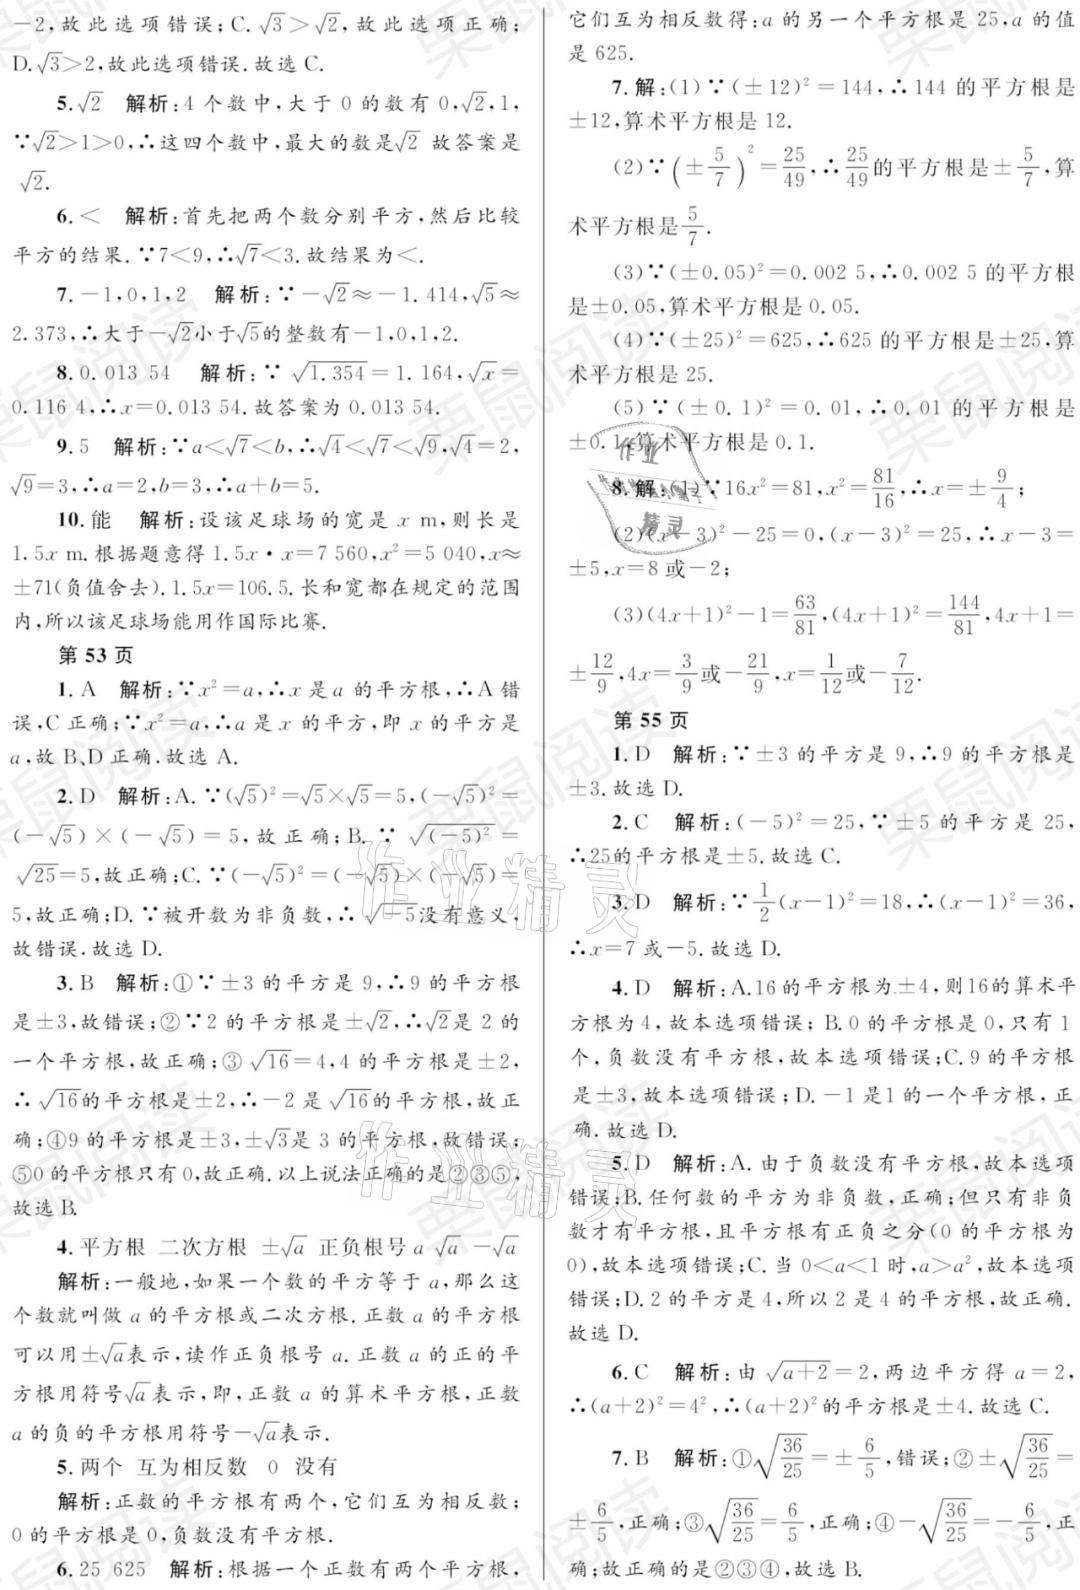 －2,故此选项错误;C.√3＞√2,故此选项正确;
D.√3＞2,故此选项错误.故选 C.
5.√2 解析:4 个数中,大于 0 的数有 0,√2,1,
∵√2＞1＞0,∴这四个数中,最大的数是√2 故答案是
√2.
6.＜ 解析:首先把两个数分别平方,然后比较
平方的结果.∵7＜9,∴√7＜3.故结果为＜.
7.－1,0,1,2 解析:∵－√2≈－1.414,√5≈
2.373,∴大于－√2小于√5的整数有－1,0,1,2.
8.0.013 54 解析:∵ √1.354＝1.164,√x＝
0.116 4,∴x＝0.013 54.故答案为 0.013 54.
9.5 解析:∵a＜√7＜b,∴√4＜√7＜√9,√4＝2,
√9＝3,∴a＝2,b＝3,∴a＋b＝5.
10.能 解析:设该足球场的宽是 x m,则长是
1.5x m.根据题意得 1.5x·x＝7 560,x²＝5 040,x≈
±71(负值舍去).1.5x＝106.5.长和宽都在规定的范围
内,所以该足球场能用作国际比赛.
第 53 页
1.A 解析:∵x²＝a,∴x 是a 的平方根,∴A 错
误,C 正确;∵x²＝a,∴a 是 x 的平方,即 x 的平方是
a,故 B、D 正确.故选 A.
2.D 解析:A.∵(√5)²＝√5×√5＝5,(－√5)²＝
(－√5)×(－√5)＝5,故正确;B.∵ √(－5)²＝
√25＝5,故正确;C.∵(－√5)²＝(－√5)×(－√5)＝
5,故正确;D.∵被开数为非负数,∴√－5没有意义,
故错误.故选 D.
3.B 解析:①∵±3 的平方是 9,∴9 的平方根
是±3,故错误;②∵2 的平方根是±√2,∴√2是 2 的
一个平方根,故正确;③ √16＝4,4 的平方根是±2,
∴ √16的平方根是±2,∴－2 是 √16的平方根,故正
确;④9 的平方根是±3,±√3是 3 的平方根,故错误;
⑤0 的平方根只有 0,故正确.以上说法正确的是②③⑤,
故选 B.
4.平方根 二次方根 ±√a 正负根号 a √a －√a
解析:一般地,如果一个数的平方等于 a,那么这
个数就叫做 a 的平方根或二次方根.正数 a 的平方根
可以用±√a表示,读作正负根号 a.正数 a 的正的平
方根用符号√a表示,即,正数 a 的算术平方根,正数
a 的负的平方根用符号－√a表示.
5.两个 互为相反数 0 没有
解析:正数的平方根有两个,它们互为相反数;
0 的平方根是 0,负数没有平方根.
6.25 625 解析:根据一个正数有两个平方根,
它们互为相反数得:a 的另一个平方根是 25,a 的值
是 625.
7.解:(1)∵(±12)²＝144,∴144 的平方根是
±12,算术平方根是 12.
(2)∵(±5/7)²＝25/49,∴25/49的平方根是±5/7,算
术平方根是5/7.
(3)∵(±0.05)²＝0.002 5,∴0.002 5 的平方根
是±0.05,算术平方根是 0.05.
(4)∵(±25)²＝625,∴625 的平方根是±25,算
术平方根是 25.
(5)∵(±0.1)²＝0.01,∴0.01 的平方根是
±0.1,算术平方根是 0.1.
8.解:(1)∵16x²＝81,x²＝81/16,∴x＝±9/4;
(2)(x－3)²－25＝0,(x－3)²＝25,∴x－3＝
±5,x＝8 或－2;
(3)(4x＋1)²－1＝63/81,(4x＋1)²＝144/81,4x＋1＝
±12/9,4x＝3/9或－21/9,x＝1/12或－7/12.
第 55 页
1.D 解析:∵±3 的平方是 9,∴9 的平方根是
±3.故选 D.
2.C 解析:(－5)²＝25,∵±5 的平方是 25,
∴25的平方根是±5.故选 C.
3.D 解析:∵1/2(x－1)²＝18,∴(x－1)²＝36,
∴x＝7 或－5.故选 D.
4.D 解析:A.16 的平方根为±4,则16的算术平
方根为 4,故本选项错误;B.0 的平方根是 0,只有 1
个,负数没有平方根,故本选项错误;C.9 的平方根
是±3,故本选项错误;D.－1 是1 的一个平方根,正
确.故选 D.
5.D 解析:A.由于负数没有平方根,故本选项
错误;B.任何数的平方为非负数,正确;但只有非负
数才有平方根,且平方根有正负之分(0 的平方根为
0),故本选项错误;C.当 0＜a＜1 时,a＞a²,故本选项
错误;D.2 的平方是 4,所以 2 是 4 的平方根,故正确.
故选 D.
6.C 解析:由 √a＋2＝2,两边平方得 a＝2,
∴(a＋2)²＝4²,∴(a＋2)²的平方根是±4.故选 C.
7.B 解析:①√36/25＝±6/5,错误;②±√36/25＝
±6/5,正确;③√36/25＝6/5,正确;④－√36/25＝－6/5,正
确;故正确的是②③④,故选 B.